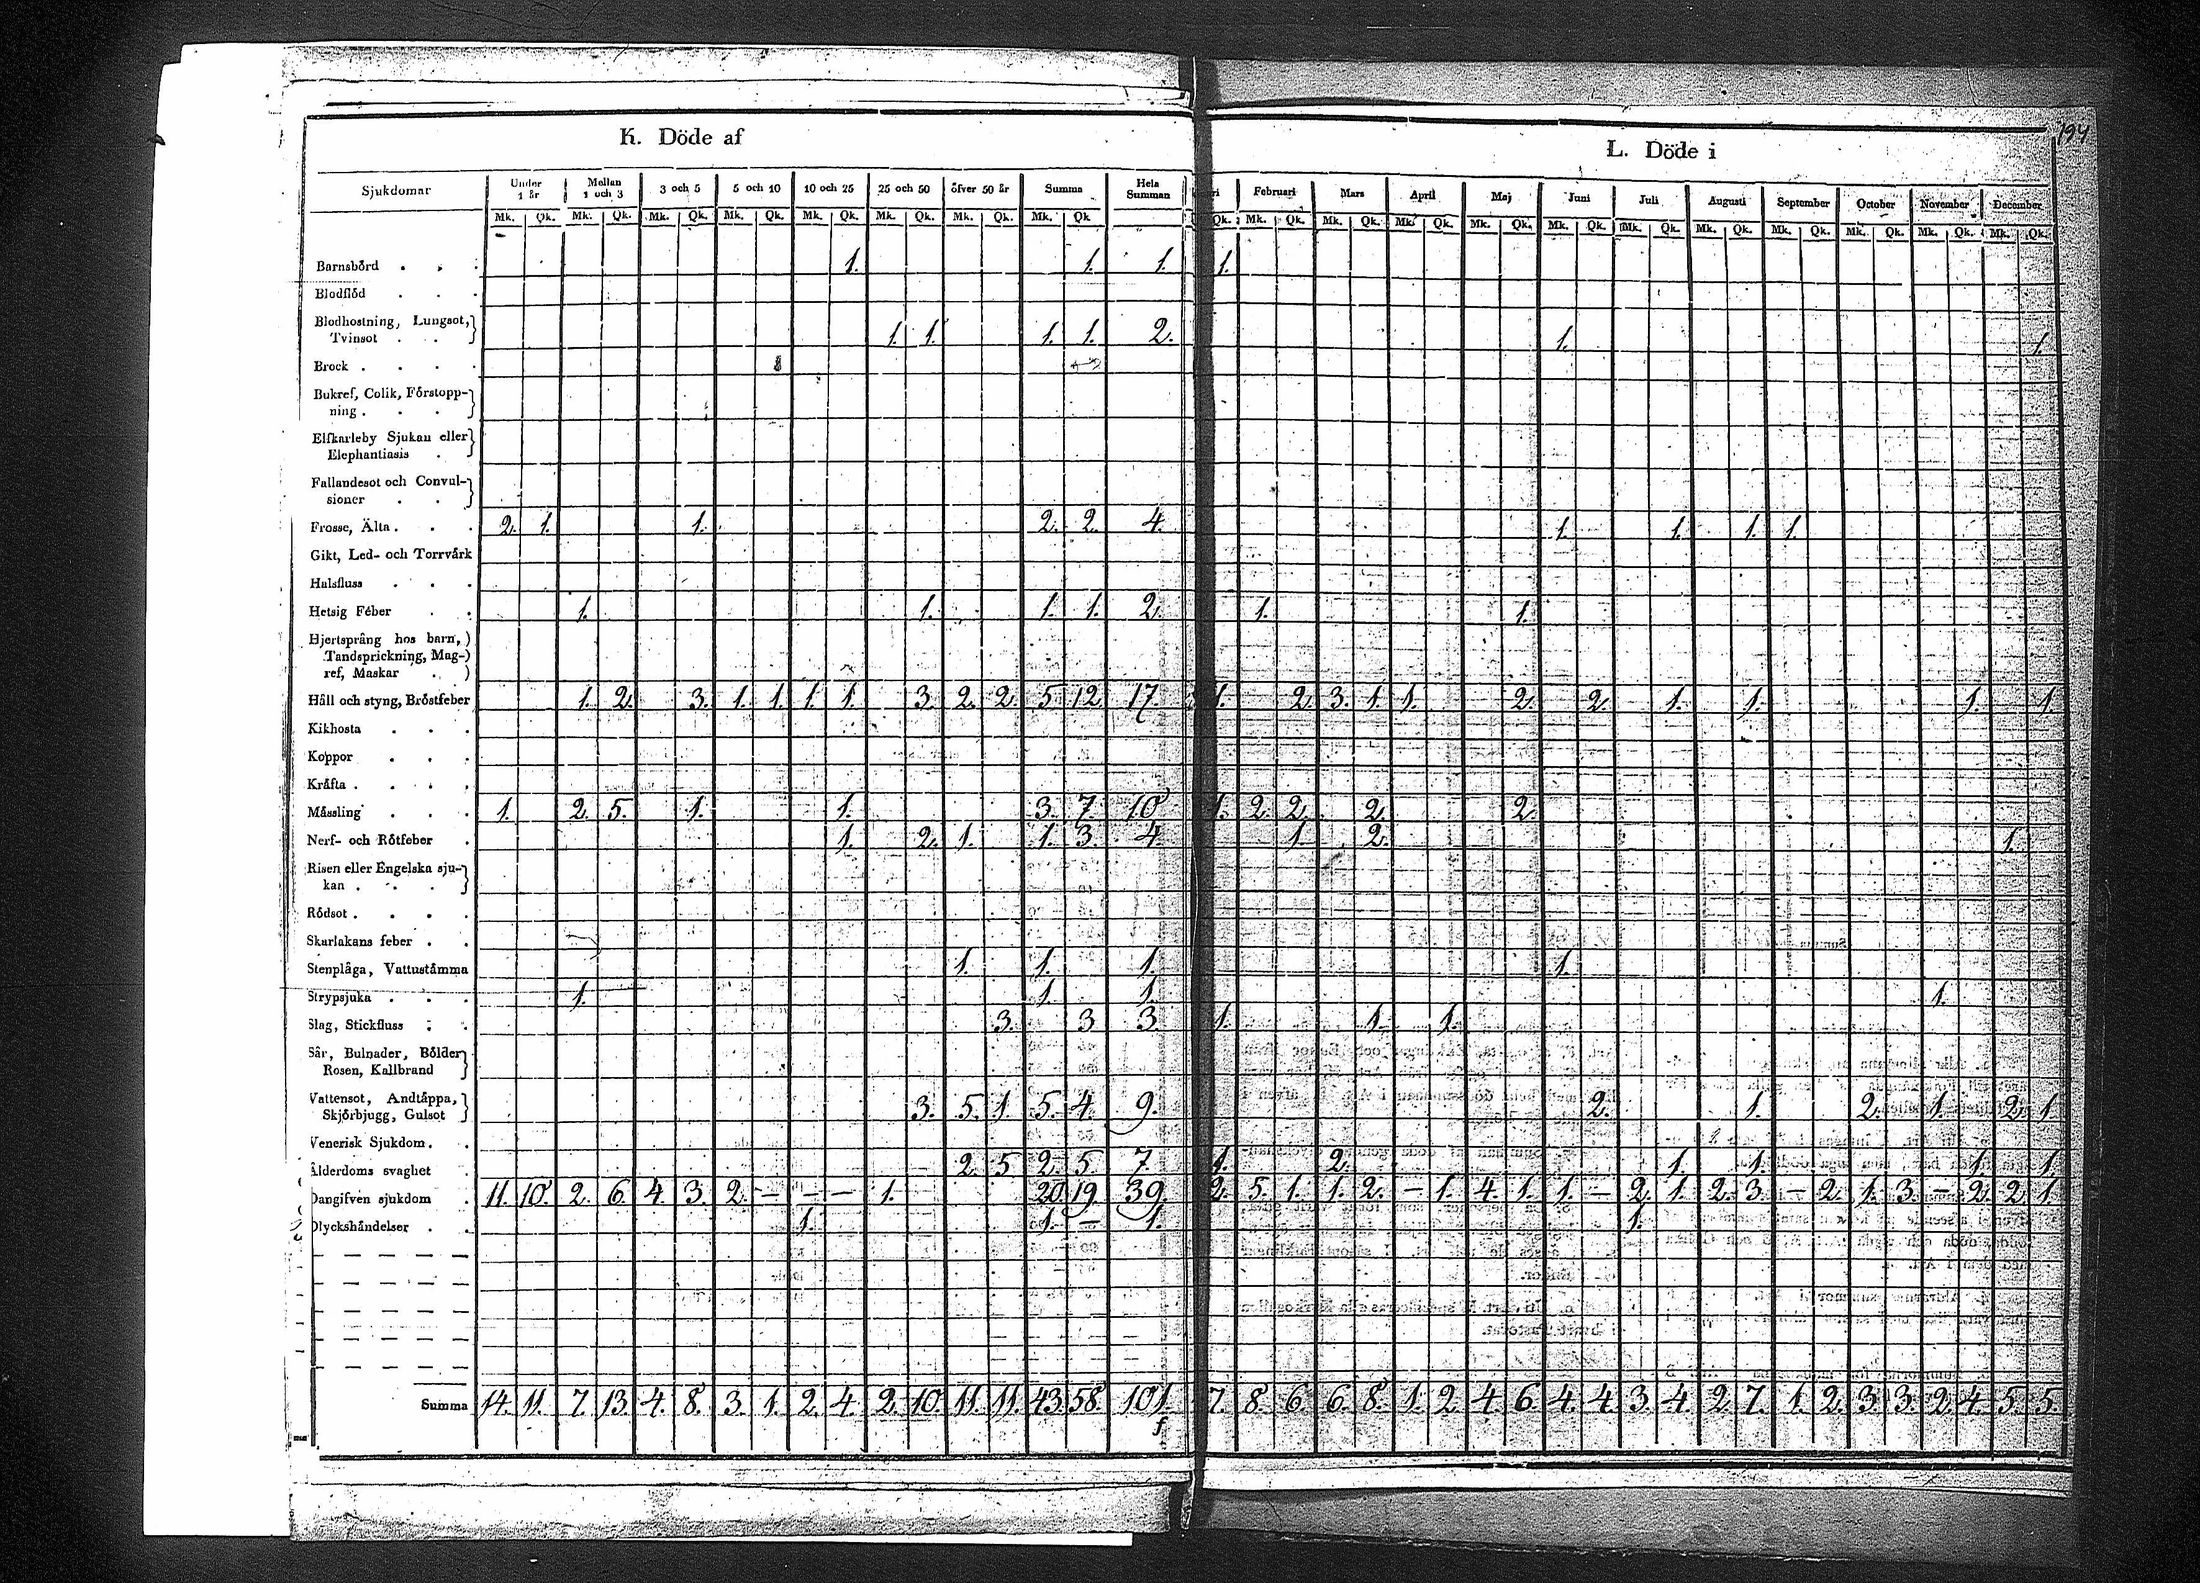 194
K. Döde af
L. Döde i
Sjukdomar Under 1 år Mellan 1 och 3 3 och 5 5 och 10 10 och 25 25 och 50 öfver 50 år Summa Hela Summan Februari Mars April Maj Juni Juli Augusti September October November December
Mk. Qk. Mk. Qk. Mk. Qk. Mk. Qk. Mk. Qk. Mk. Qk. Mk. Qk. Mk. Qk. Qk. Mk. Qk. Mk. Qk. Mk. Qk. Mk. Qk. Mk. Qk. Mk. Qk. Mk. Qk. Mk. Qk. Mk. Qk. Mk. Qk. Mk. Qk.
Barnsbörd . . . 1. 1. 1. 1.
Blodflöd . . .
Blodhostning, Lungsot,
Tvinsot . . 1. 1. 1. 1. 2. 1. 1.
Brock . . . .
Bukref, Colik, Förstopp-
ning . . .
Elfkarleby Sjukan eller
Elephantiasis .
Fallandesot och Convul-
sioner . .
Frosse, Älta . . . 2. 1. 1. 2. 2. 4. 1. 1. 1. 1.
Gikt, Led- och Torrvärk
Halsfluss . . .
Hetsig Feber . . 1. 1. 1. 1. 2. 1. 1.
Hjertsprång hos barn,
Tandsprickning, Mag-
ref, Maskar .
Håll och styng, Bröstfeber 1. 2. 3. 1. 1. 1. 1. 3. 2. 2. 5. 12. 17. 1. 2. 3. 1. 1. 2. 2. 1. 1. 1. 1.
Kikhosta . . .
Koppor . . .
Kräfta . . . .
Mässling . . . 1. 2. 5. 1. 1. 3. 7. 10 1. 2. 2. 2. 2.
Nerf- och Rötfeber . 1. 2. 1. 1. 3. 4. 1. 2. 1.
Risen eller Engelska sju-
kan . . .
Rödsot . . . .
Skarlakans feber . .
Stenplåga, Vattustämma 1. 1. 1. 1.
Strypsjuka . . . 1. 1. 1. 1.
Slag, Stickfluss . . 3. 3 3 1. 1. 1.
Sår, Bulnader, Bölder
Rosen, Kallbrand
Vattensot, Andtäppa,
Skjörbjugg, Gulsot 3. 5. 1. 5. 4. 9. 2. 1. 2. 1. 2. 1.
Venerisk Sjukdom . .
Ålderdoms svaghet . 2. 5 2. 5. 7 1. 2. 1. 1. 1. 1.
Oangifven sjukdom . 11. 10. 2. 6. 4. 3. 2. – – – 1. 20. 19. 39. 2. 5. 1. 1. 2. – 1. 4. 1. 1. – 2. 1. 2. 3. – 2. 1. 3. – 2. 2. 1.
Olyckshändelser . . 1. 1. – 1. 1.
Summa 14. 11. 7. 13. 4. 8. 3. 1. 2. 4. 2. 10. 11. 11. 43. 58. 101. 7. 8. 6. 6. 8. 1. 2. 4. 6. 4. 4. 3. 4. 2. 7. 1. 2. 3. 3. 2. 4. 5. 5.